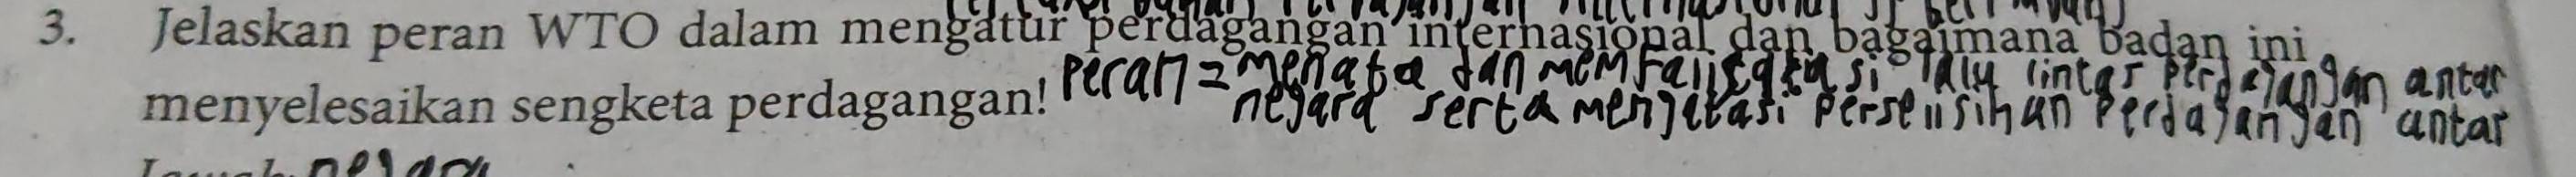 3. Jelaskan peran WTO dalam mengatur perdagangan internasional dan bagaimana badan ini
menyelesaikan sengketa perdagangan! Peran = menata dan memfalisatasi lalu lintas perdagangan antar
negara serta mengatasi perselisihan perdagangan antar
negara